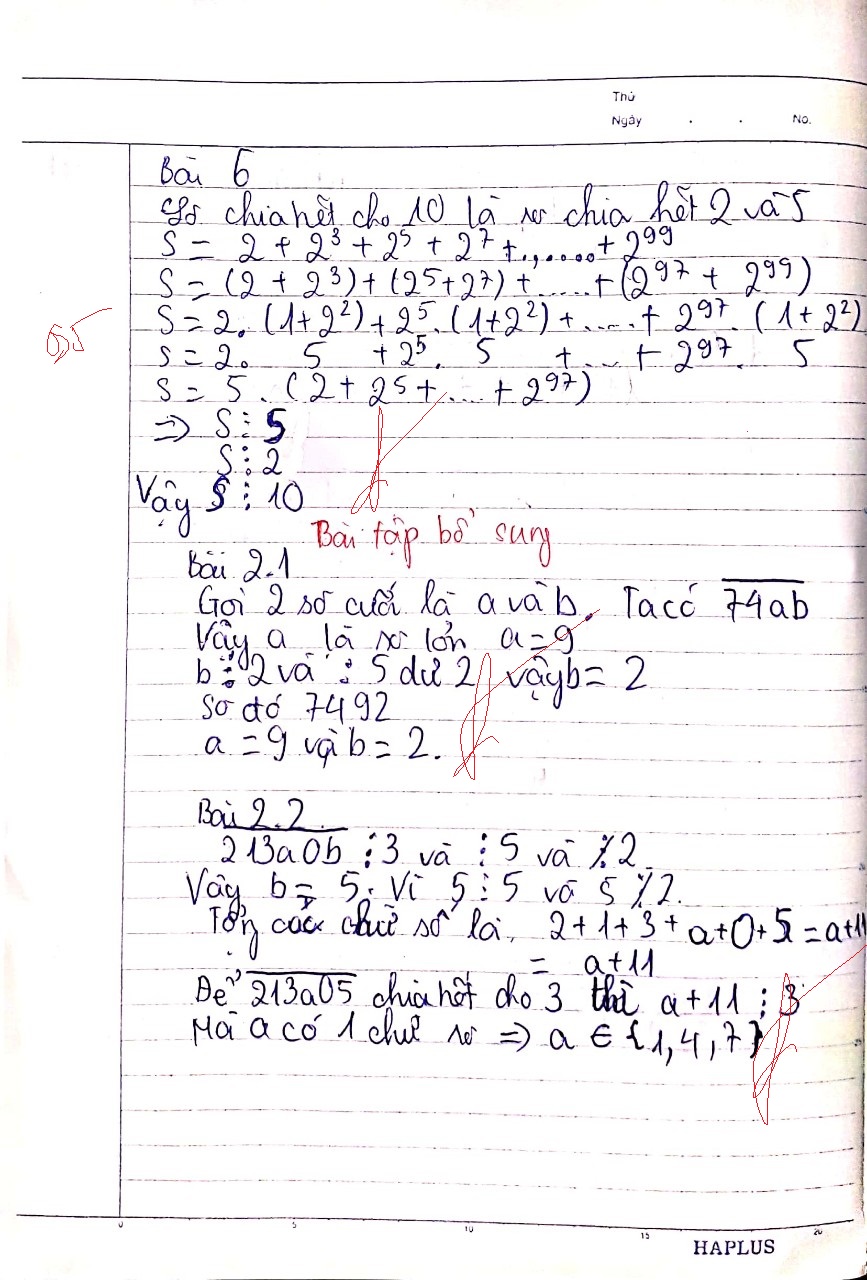 Thứ
Ngày . . No.
Bài 6
Số chia hết cho 10 là số chia hết 2 và 5
S = 2 + 2³ + 2⁵ + 2⁷ +.,.....+ 2⁹⁹
S = (2 + 2³) + (2⁵+2⁷) + ......+ (2⁹⁷ + 2⁹⁹)
S = 2. (1+2²) + 2⁵. (1+2²) + ....+ 2⁹⁷. (1+2²)
0,5
S = 2. 5 + 2⁵. 5 + ... + 2⁹⁷. 5
S = 5 . (2 + 2⁵ + .... + 2⁹⁷)
=> S ⋮ 5
S ⋮ 2
Vậy S ⋮ 10
Bài tập bổ sung
Bài 2.1
Gọi 2 số cuối là a và b. Ta có 74ab
Vậy a là số lớn a = 9
b ⋮ 2 và ⋮ 5 dư 2 vậy b = 2
Số đó 7492
a = 9 và b = 2.
Bài 2.2
213a0b ⋮ 3 và ⋮ 5 và ⋮̸ 2
Vậy b = 5. Vì 5 ⋮ 5 và 5 ⋮̸ 2.
Tổng các chữ số là, 2+1+3+a+0+5 = a+11
= a+11
Để 213a05 chia hết cho 3 thì a+11 ⋮ 3
Mà a có 1 chữ số => a ∈ {1,4,7}
0 5 10 15 20
HAPLUS